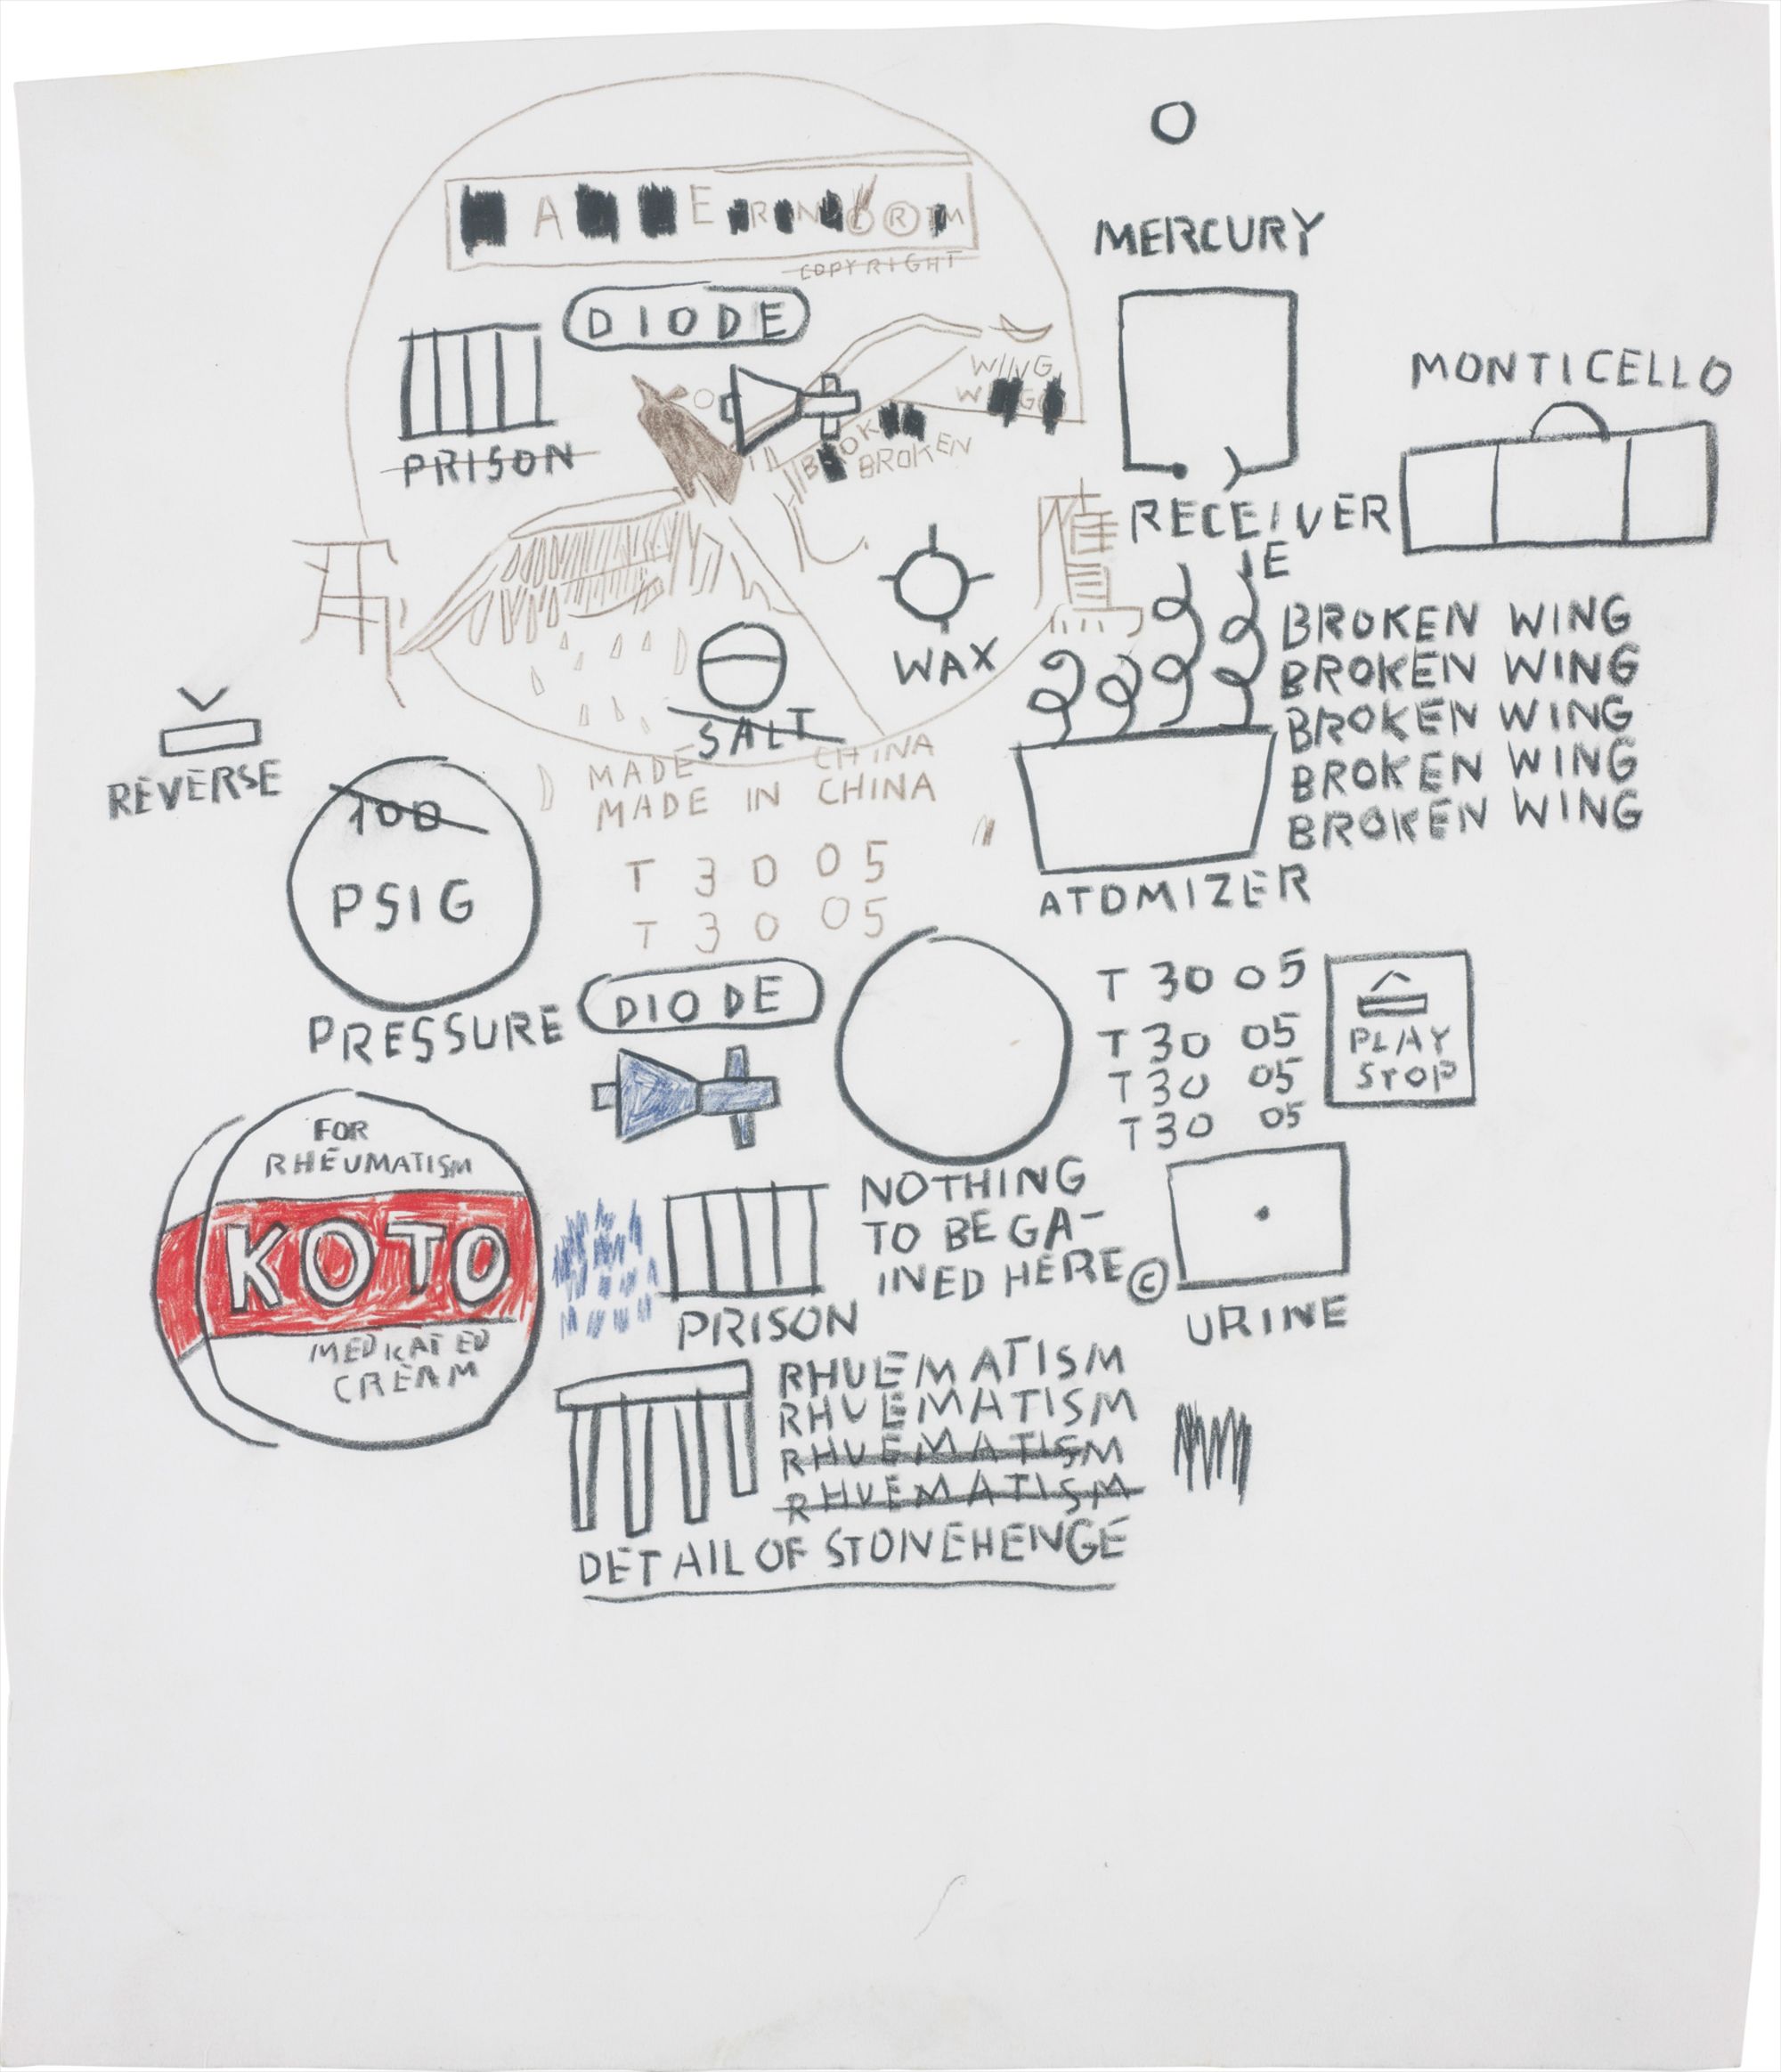 MERCURY
COPYRIGHT
DIODE
PRISON
WING
BROKEN
MONTICELLO
RECEIVER
IE
鷹
牙
WAX
SALT
REVERSE
100
PSIG
PRESSURE
MADE CHINA
MADE IN CHINA
T 3 0 0 5
T 3 0 0 5
BROKEN WING
BROKEN WING
BROKEN WING
BROKEN WING
BROKEN WING
ATOMIZER
DIODE
T 30 05
T 30 05
T 30 05
T 30 05
PLAY
STOP
FOR
RHEUMATISM
KOTO
MEDICATED
CREAM
PRISON
NOTHING
TO BE GA-
INED HERE ©
URINE
RHUEMATISM
RHUEMATISM
RHUEMATISM
RHUEMATISM
DETAIL OF STONEHENGE